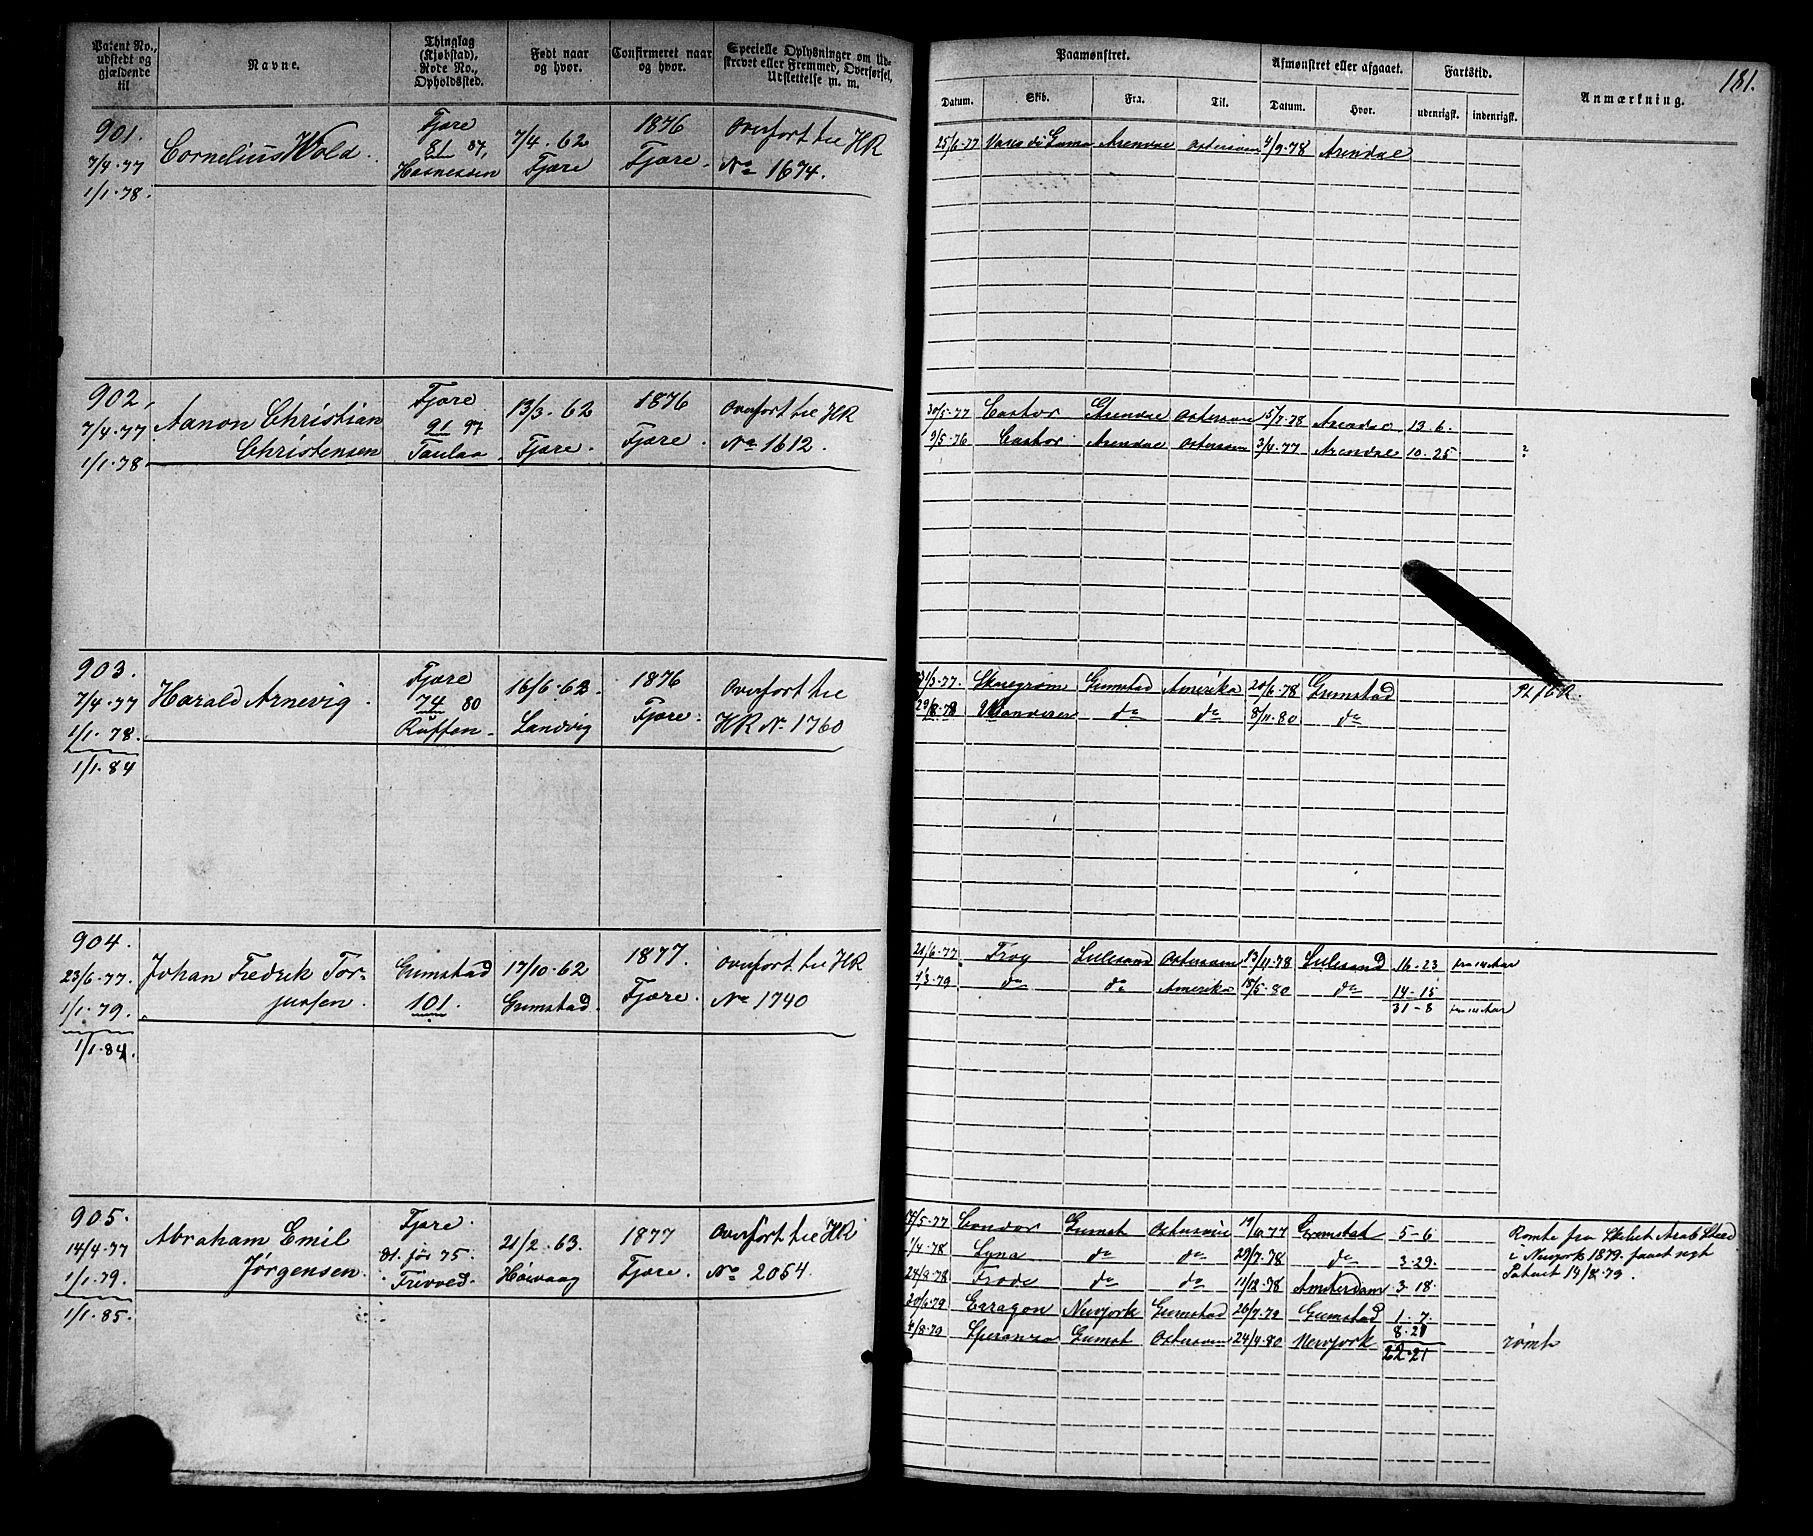 181.
Patent No., udstedt og gjældende til
Navne.
Thinglag (Kjøbstad), Rode No., Opholdssted.
Født naar og hvor.
Confirmeret naar og hvor.
Specielle Oplysninger om Udskrevet eller Fremmed, Overførsel, Udslettelse m. m.
Paamønstret.
Afmønstret eller afgaaet.
Fartstid.
Anmærkning.
Datum. Skib. Fra. Til. Datum. Hvor. udenrigsk. indenrigsk.
901.
7/4-77
1/1-78.
Cornelius Wold.
Fjære
81 87,
7/4-62
Fjære
1876
Fjære.
Overført til HR
No 1674.
25/6-77 Vasco di Gama Arendal Østersøen 4/9-78 Arendal
902,
7/4-77
1/1-78
Aanon Christian
Christensen
Fjære
91 97
Taulaa
13/3-62
Fjære.
1876
Fjære.
Overført til HR
No 1612.
30/5-77 Castor Arendal Østersøen 15/7-78 Arendal 13-6.
9/5-76 Castor Arendal Østersøen 3/4-77 Arendal 10-25 ?
903.
7/4-77
1/1-78.
1/1-84
Harald Arnevig
Fjære
74 80
Rüffen.
16/6-62.
Landvig
1876
Fjære.
Overført til
HR No 1760
Grimstad Amerika 20/6-78 Grimstad
29/8-78 do do 8/11-80 do
904.
23/6-77.
1/1-79.
1/1-84.
Johan Fredrik Tor-
jursen.
Grimstad
101.
17/10-62
Grimstad.
1877.
Fjære.
Overført til HR
No 1740
21/6-77. Frey Lillesand Østersøen 13/4-78 Lillesand 16-23
1/3-79 do do Amerika 18/5-80 do 14-15
31-8
905.
14/4-77
1/1-79.
1/1-85.
Abraham Emil
Jørgensen.
Fjære.
81. før 75.
Trivved.
21/2-63.
Høivaag
1877
Fjære.
Overført til HR
No 2054
18/5-77 Condor Grimst Østersøen 19/6-77 Grimstad 5-6
1/4-78 Lyna do do 29/7-78 do 3-29.
28/9-78 Frode do do 11/12-78 Amsterdam 3-18.
20/6-79 Newyork Grimstad 26/7-79 Grimstad 1-7.
4/8-79 Speranza Grimst Østersøen 24/4-80 Newyork 8-21 rømte
22-21
Rømte fra Skibet Arab Steed
i Newyork 1879. faaet nyt
Patent 19/8-79.